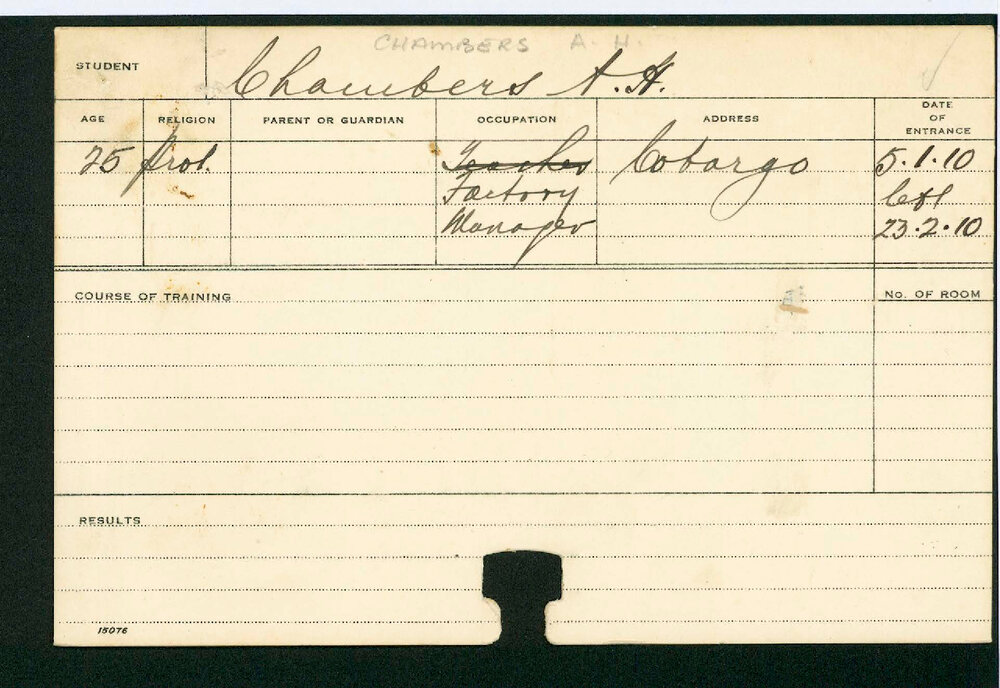 CHAMBERS A. H.
STUDENT Chambers A.H.
AGE RELIGION PARENT OR GUARDIAN OCCUPATION ADDRESS DATE OF ENTRANCE
25 Prot. Teacher Cobargo 5.1.10
Factory left
Manager 23.2.10
COURSE OF TRAINING No. OF ROOM
RESULTS
15076